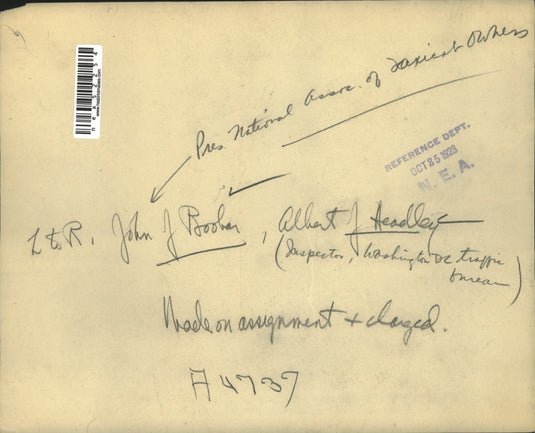 Pres. National Assoc. of Taxicab Owners
REFERENCE DEPT.
OCT 25 1923
N. E. A.
L to R, John J Boobar, Albert J Headley
(Inspector, Washington DC traffic
bureau)
Made on assignment + charged.
A4737